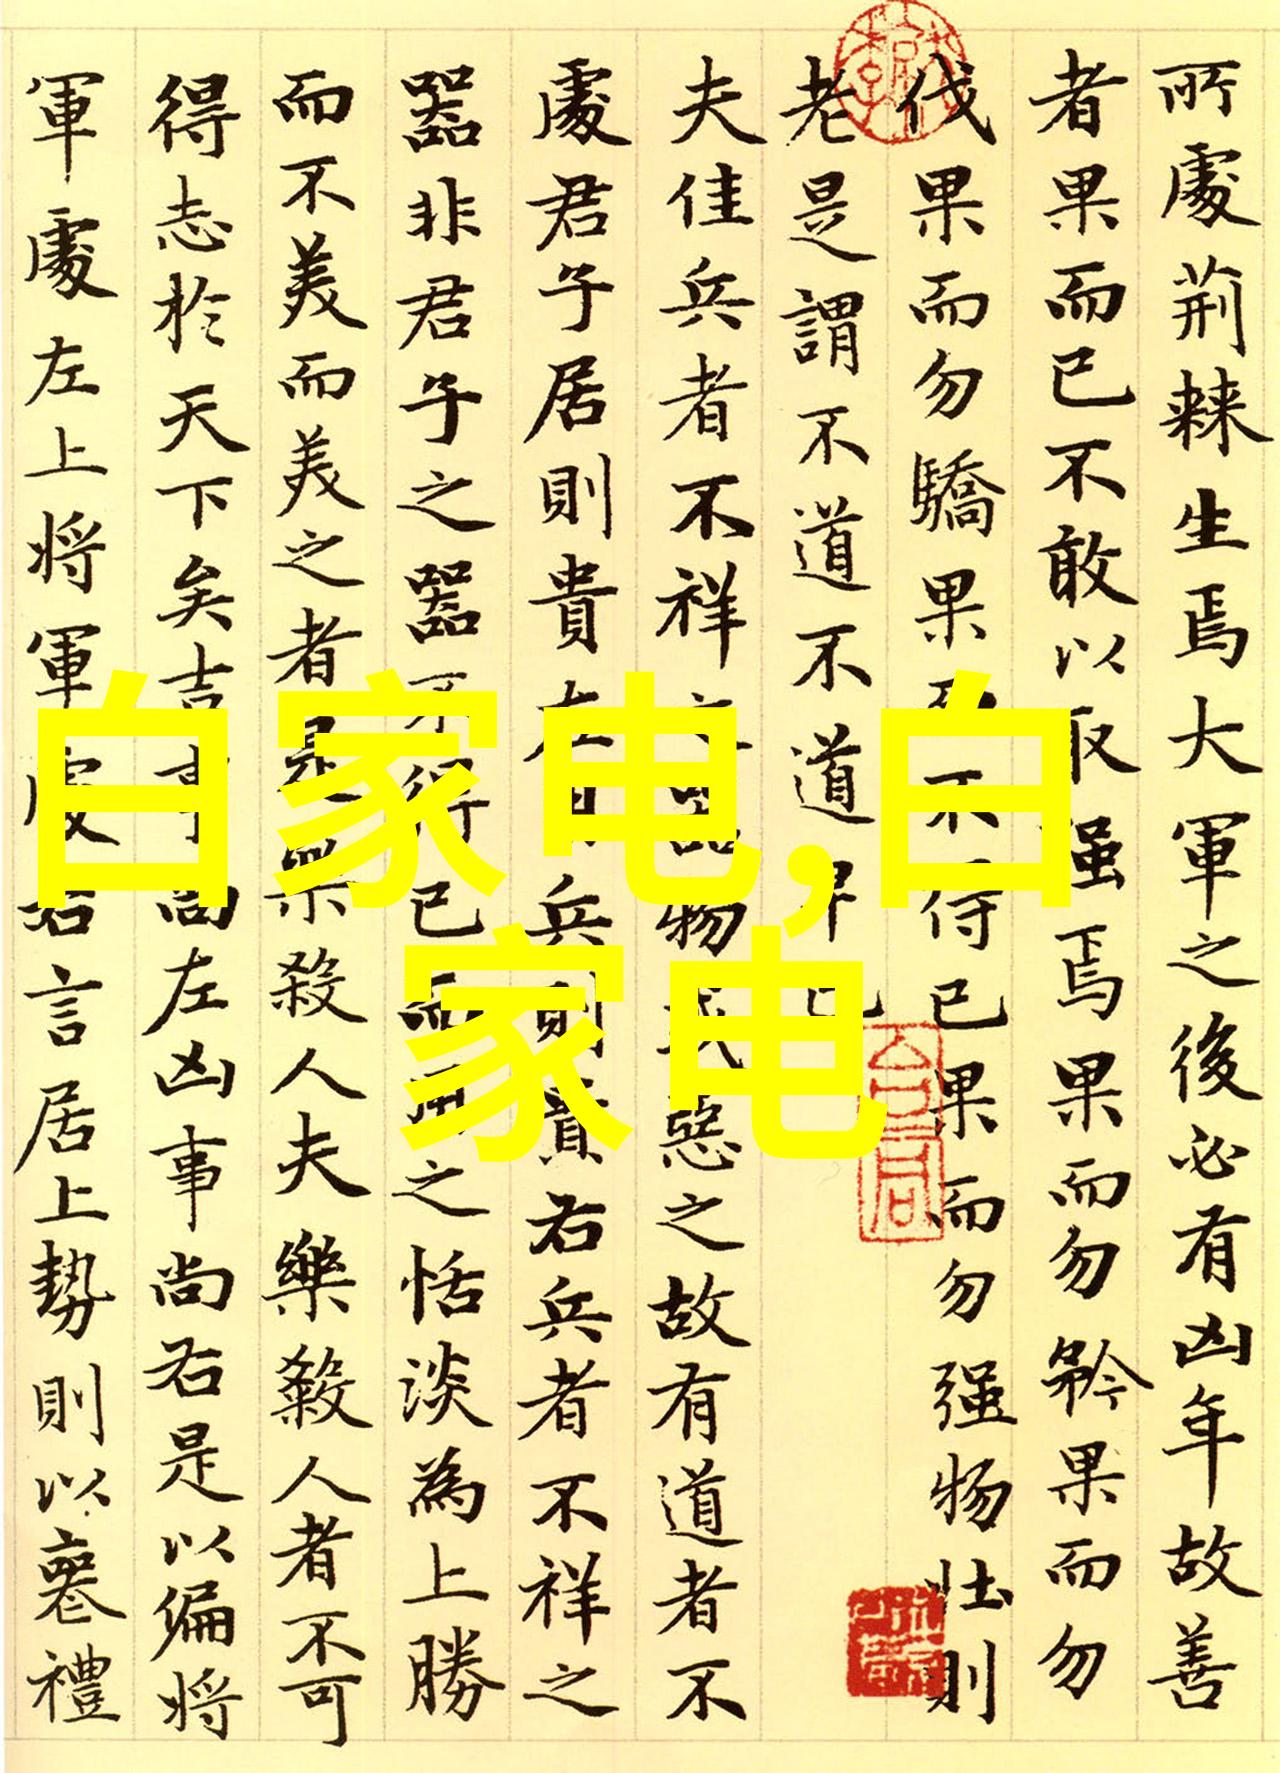 所處荊棘生焉大軍之後必有凶年故善
者果而已不敢以取强焉果而勿矜果而勿
伐果而勿驕果而不得已果而勿强物壯則
老是謂不道不道早已
夫佳兵者不祥之器物或惡之故有道者不
處君子居則貴左用兵則貴右兵者不祥之
器非君子之器不得已而用之恬淡為上勝
而不美而美之者是樂殺人夫樂殺人者不可
得志於天下矣吉事尚左凶事尚右是以偏將
軍處左上將軍處右言居上勢則以喪禮
白家电,白
家电